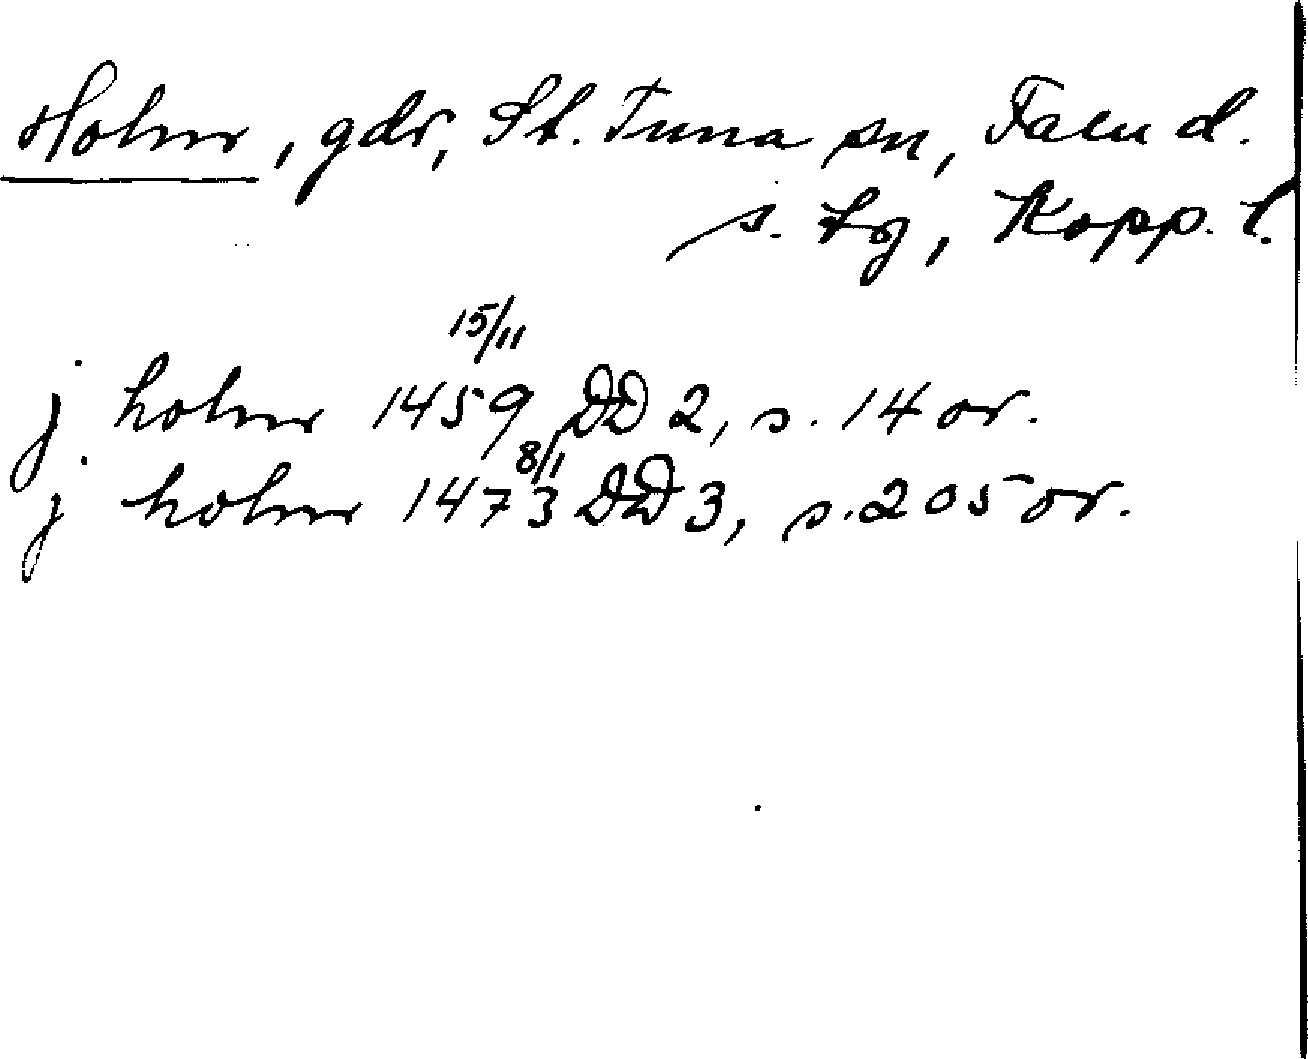 Holm, gdr, St. Tuna sn, Falu d.
s. tg, Kopp. l.
15/11
j holm 1459 DD 2, s. 14 or.
8/1
j holm 1473 DD 3, s. 205 or.